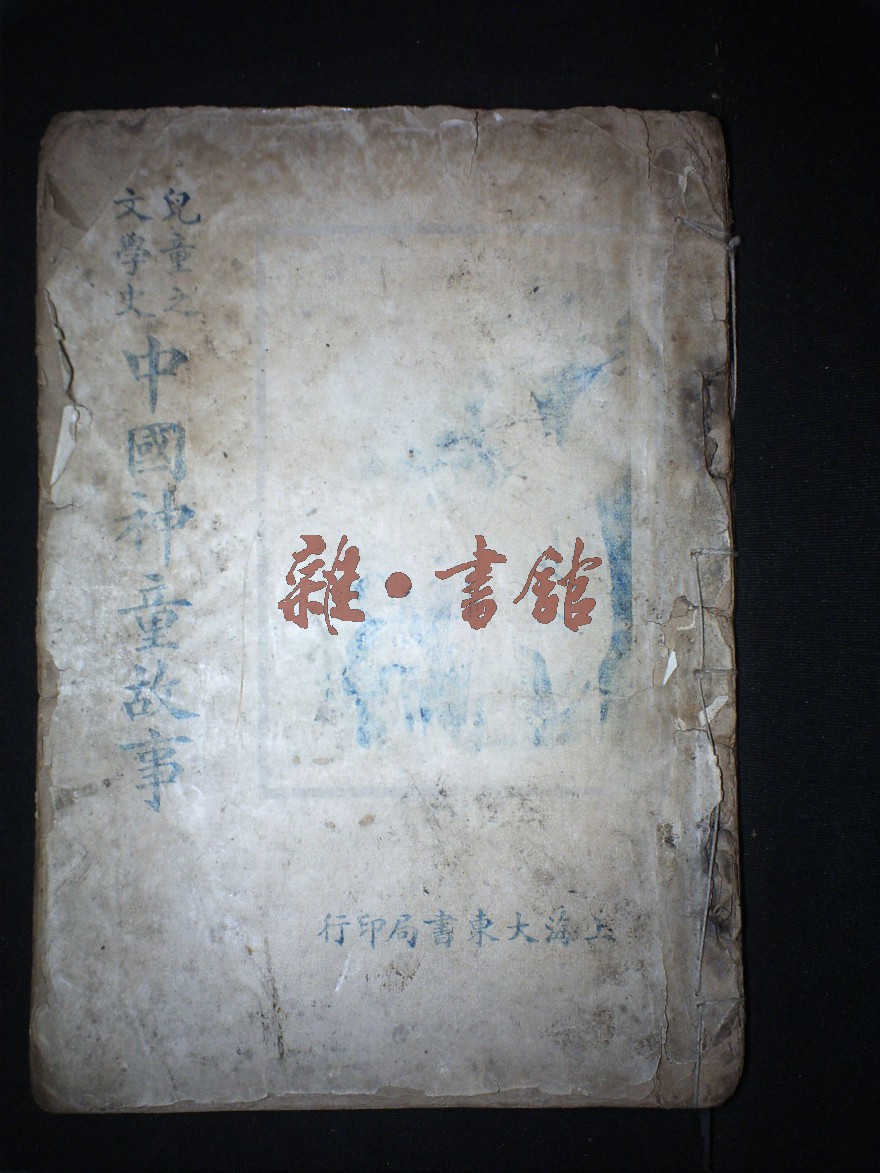 兒童之
文學史
中國神童故事
雜·書館
上海大東書局印行